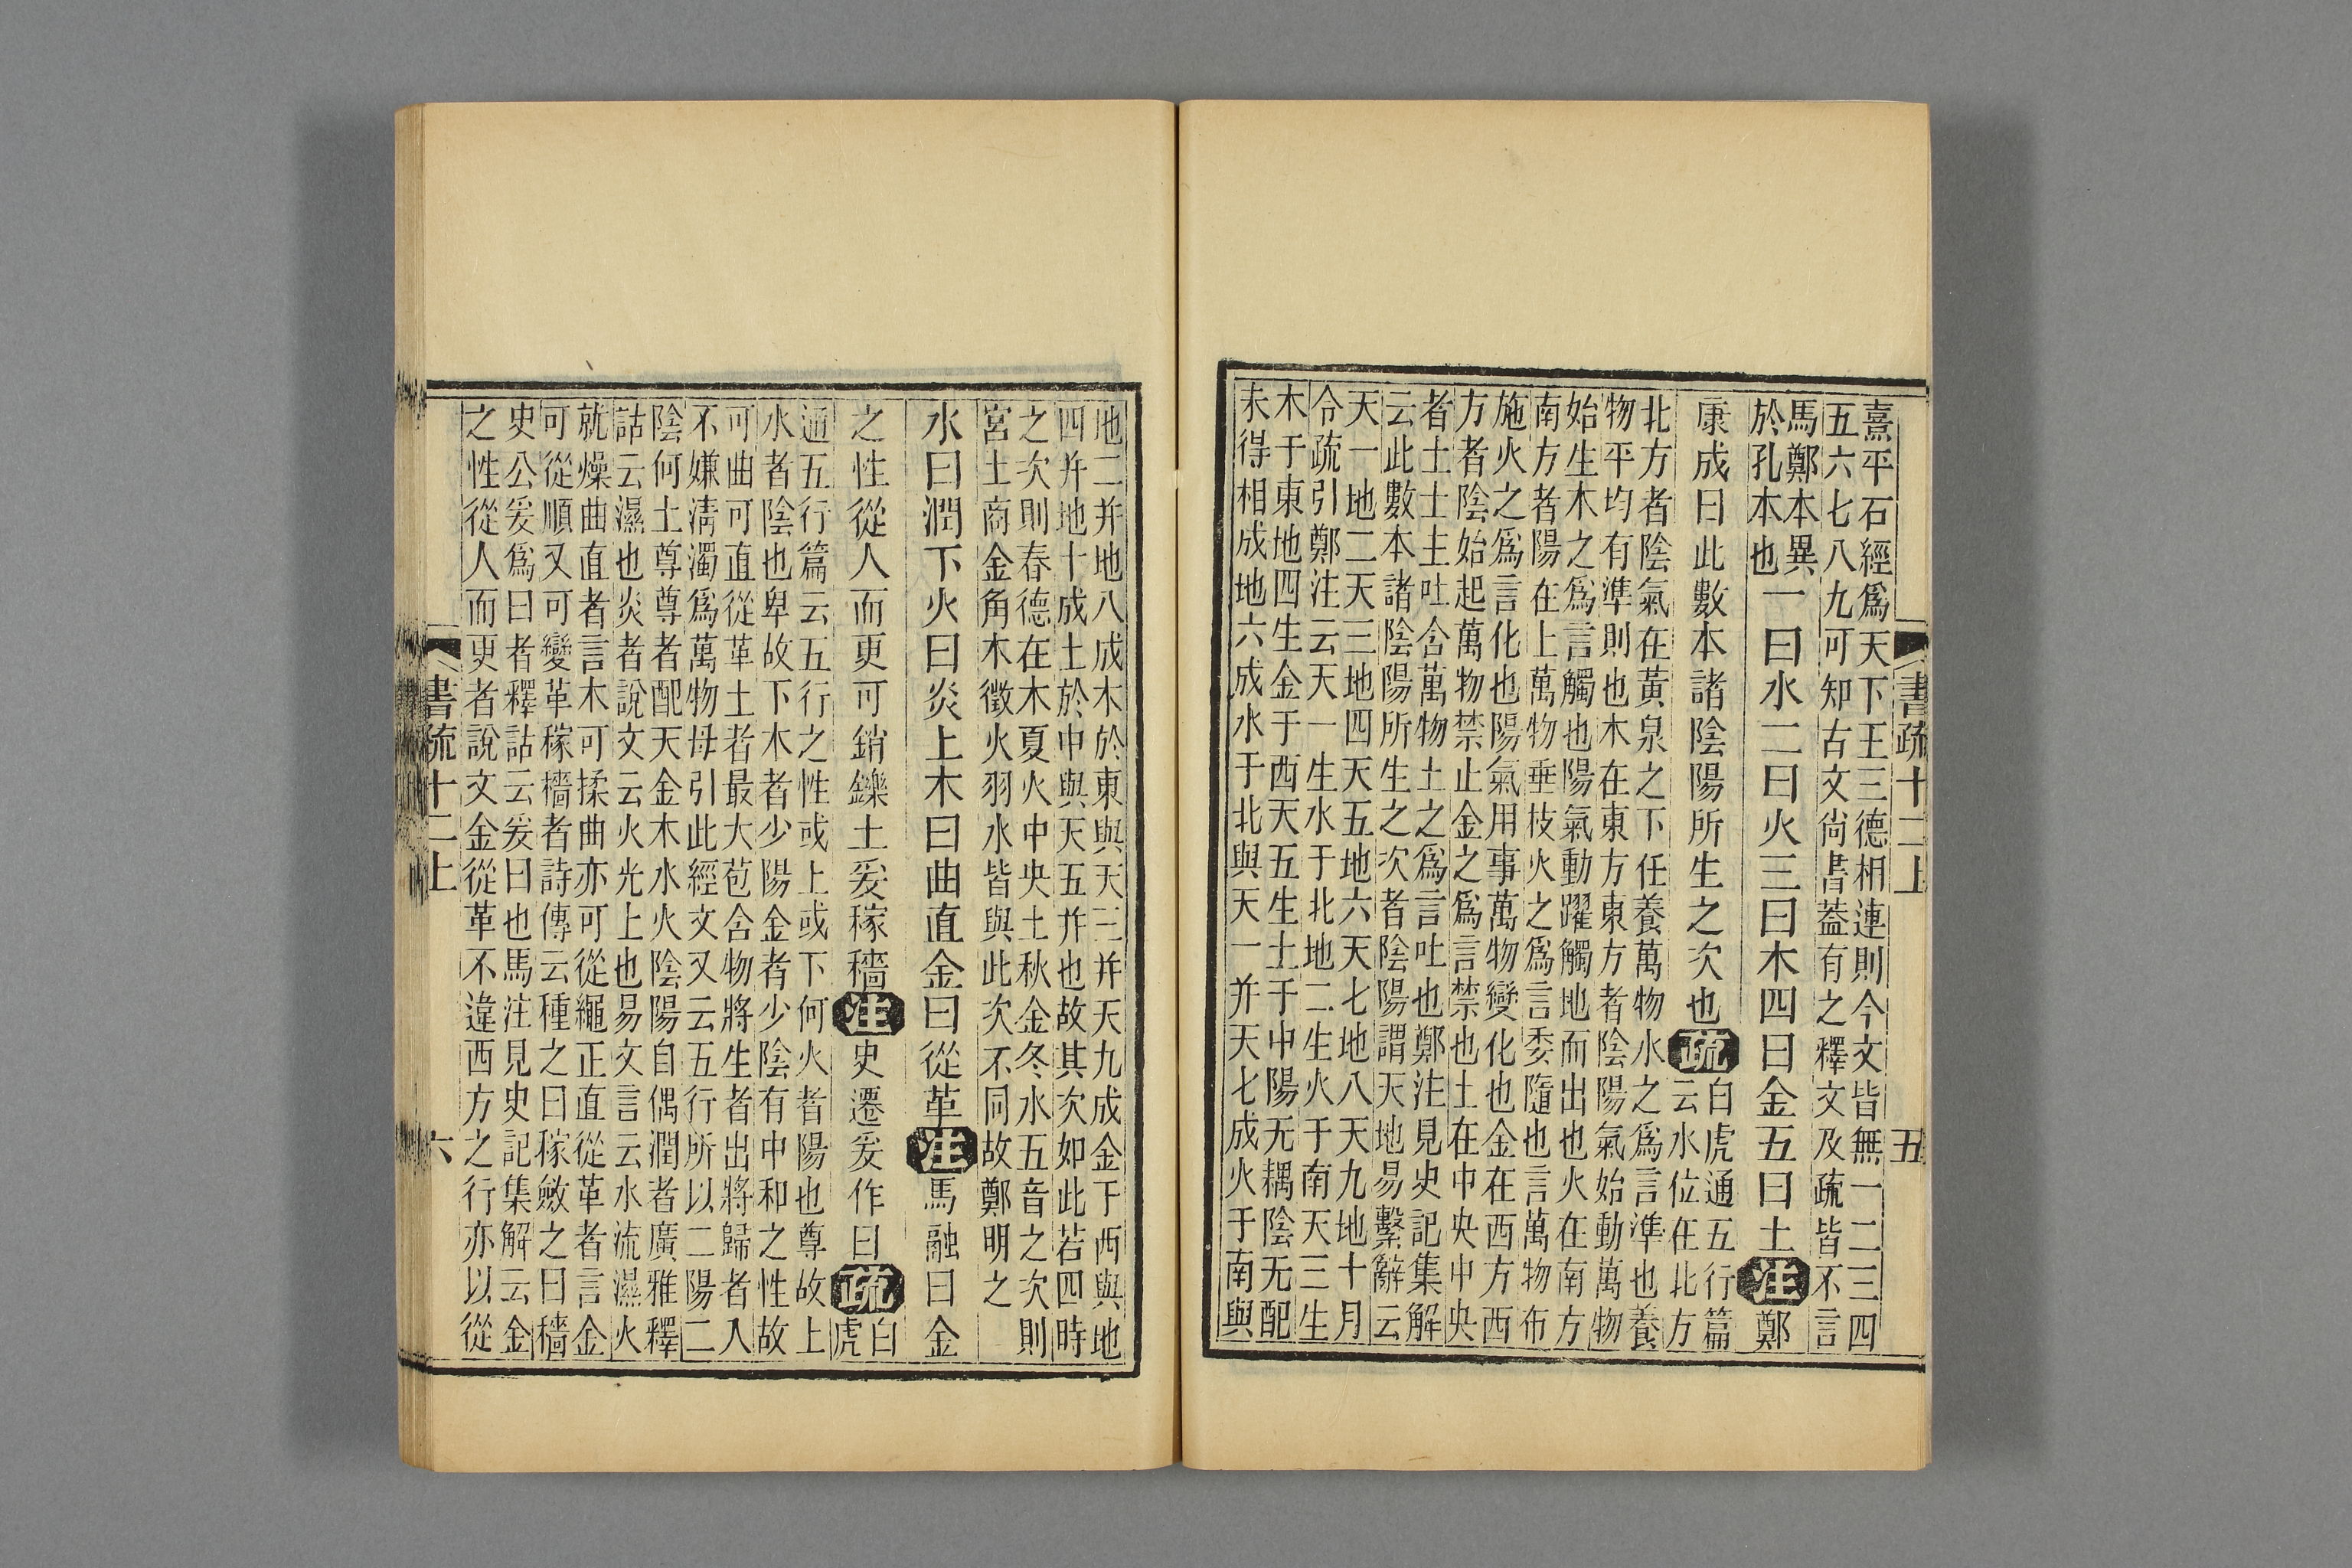 書疏十二上
五
熹平石經爲天下王三德相連則今文皆無一二三四
五六七八九可知古文尙書葢有之釋文及疏皆不言
馬鄭本異
於孔本也
一曰水二曰火三曰木四曰金五曰土注鄭
康成曰此數本諸陰陽所生之次也疏
白虎通五行篇
云水位在北方
北方者陰氣在黃泉之下任養萬物水之爲言準也養
物平均有準則也木在東方東方者陰陽氣始動萬物
始生木之爲言觸也陽氣動躍觸地而出也火在南方
南方者陽在上萬物垂枝火之爲言委隨也言萬物布
施火之爲言化也陽氣用事萬物變化也金在西方西
方者陰始起萬物禁止金之爲言禁也土在中央中央
者土土主吐含萬物土之爲言吐也鄭注見史記集解
云此數本諸陰陽所生之次者陰陽謂天地易繫辭云
天一地二天三地四天五地六天七地八天九地十月
令疏引鄭注云天一生水于北地二生火于南天三生
木于東地四生金于西天五生土于中陽无耦陰无配
未得相成地六成水于北與天一并天七成火于南與
地二并地八成木於東與天三并天九成金于西與地
四并地十成土於中與天五并也故其次如此若四時
之次則春德在木夏火中央土秋金冬水五音之次則
宮土商金角木徵火羽水皆與此次不同故鄭明之
水曰潤下火曰炎上木曰曲直金曰從革注馬融曰金
之性從人而更可銷鑠土爰稼穡注史遷爰作曰疏
白
虎
通五行篇云五行之性或上或下何火者陽也尊故上
水者陰也卑故下木者少陽金者少陰有中和之性故
可曲可直從革土者最大苞含物將生者出將歸者入
不嫌淸濁爲萬物母引此經文又云五行所以二陽二
陰何土尊尊者配天金木水火陰陽自偶潤者廣雅釋
詁云濕也炎者說文云火光上也易文言云水流濕火
就燥曲直者言木可揉曲亦可從繩正直從革者言金
可從順又可變革稼穡者詩傳云種之曰稼斂之曰穡
史公爰爲曰者釋詁云爰曰也馬注見史記集解云金
之性從人而更者說文金從革不違西方之行亦以從
書疏十二上
六